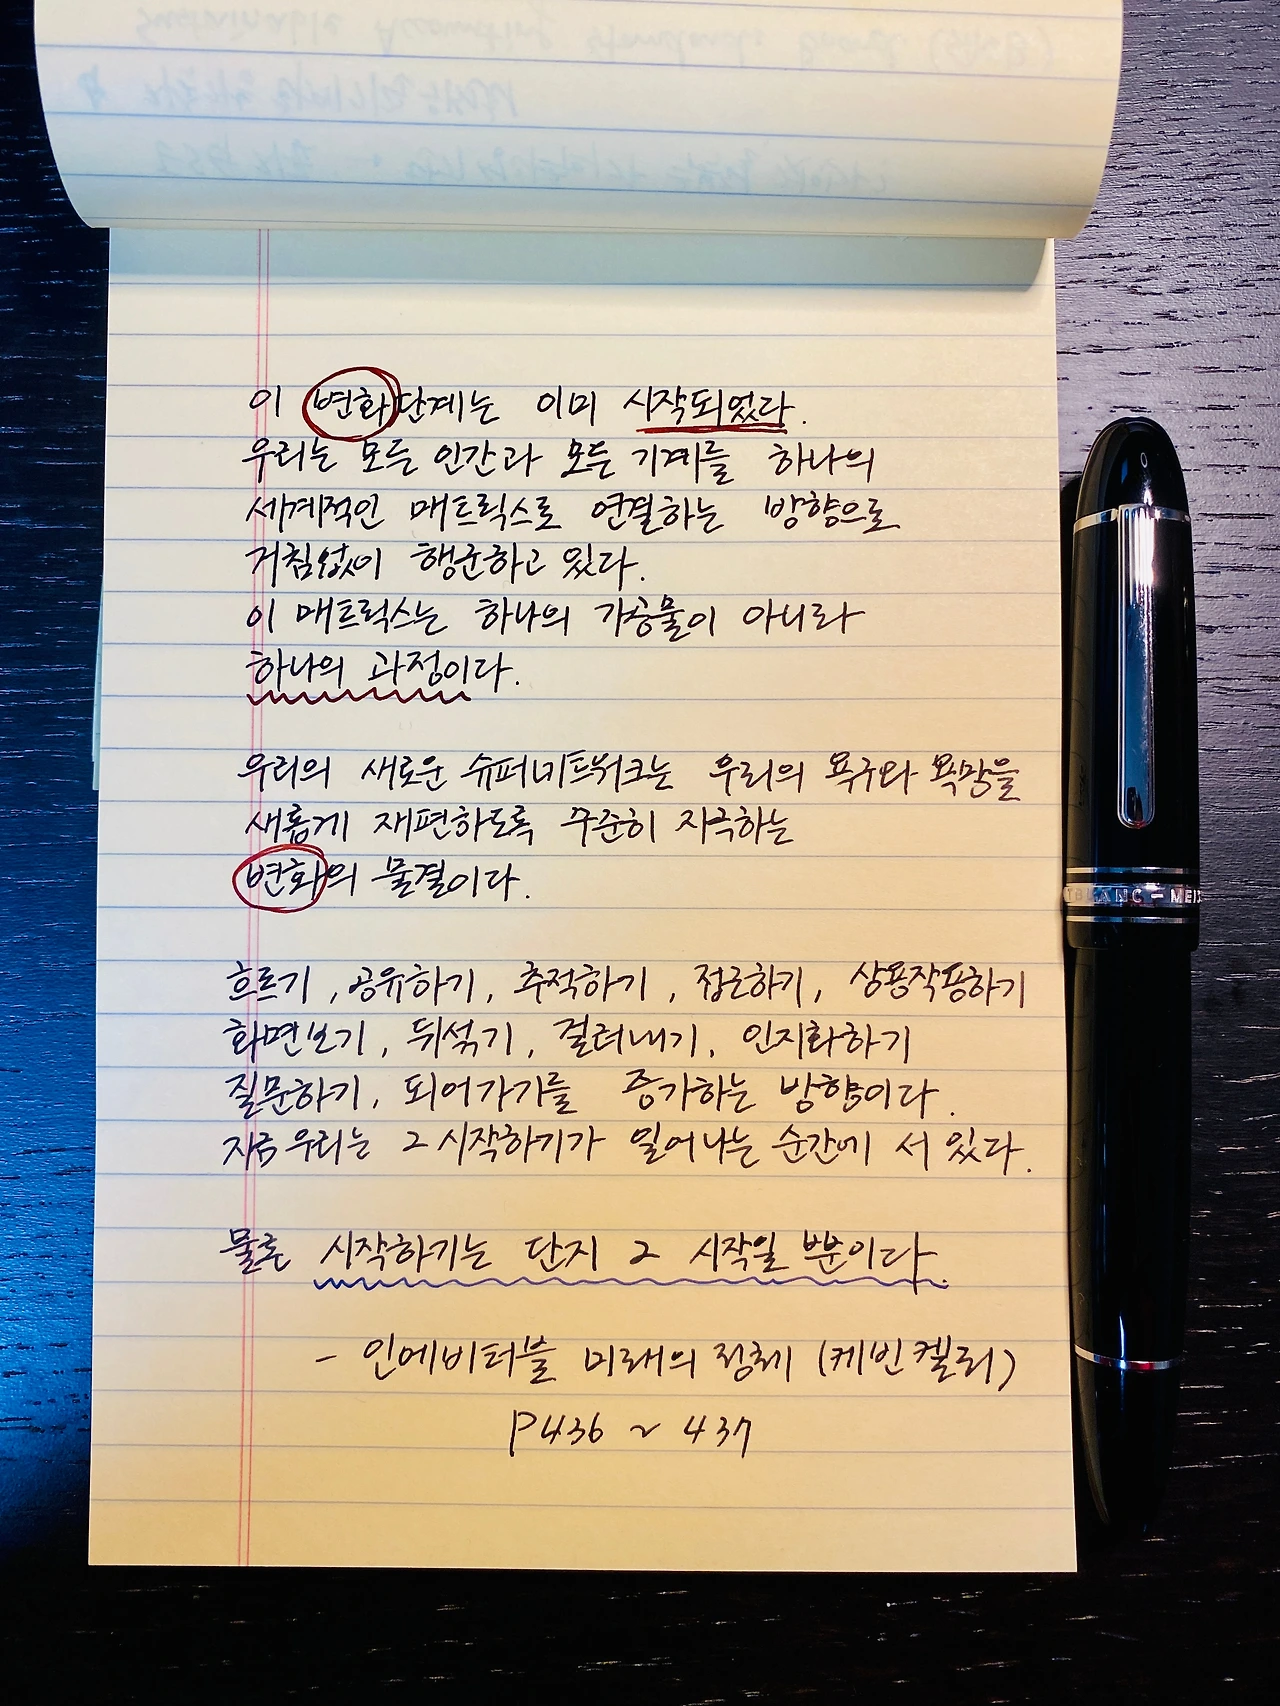 Sustainable Accounting Standards Board (SASB)
이 변화단계는 이미 시작되었다.
우리는 모든 인간과 모든 기계를 하나의
세계적인 매트릭스로 연결하는 방향으로
거침없이 행군하고 있다.
이 매트릭스는 하나의 가공물이 아니라
하나의 과정이다.
우리의 새로운 슈퍼네트워크는 우리의 욕구와 욕망을
새롭게 재편하도록 꾸준히 자극하는
변화의 물결이다.
흐르기, 공유하기, 추적하기, 접근하기, 상용작용하기
화면보기, 뒤섞기, 걸러내기, 인지화하기
질문하기, 되어가기를 증가하는 방향이다.
지금 우리는 그 시작하기가 일어나는 순간에 서 있다.
물론 시작하기는 단지 그 시작일 뿐이다.
- 인에비터블 미래의 정체 (케빈켈리)
P436 ~ 437
TBLANC – MEI